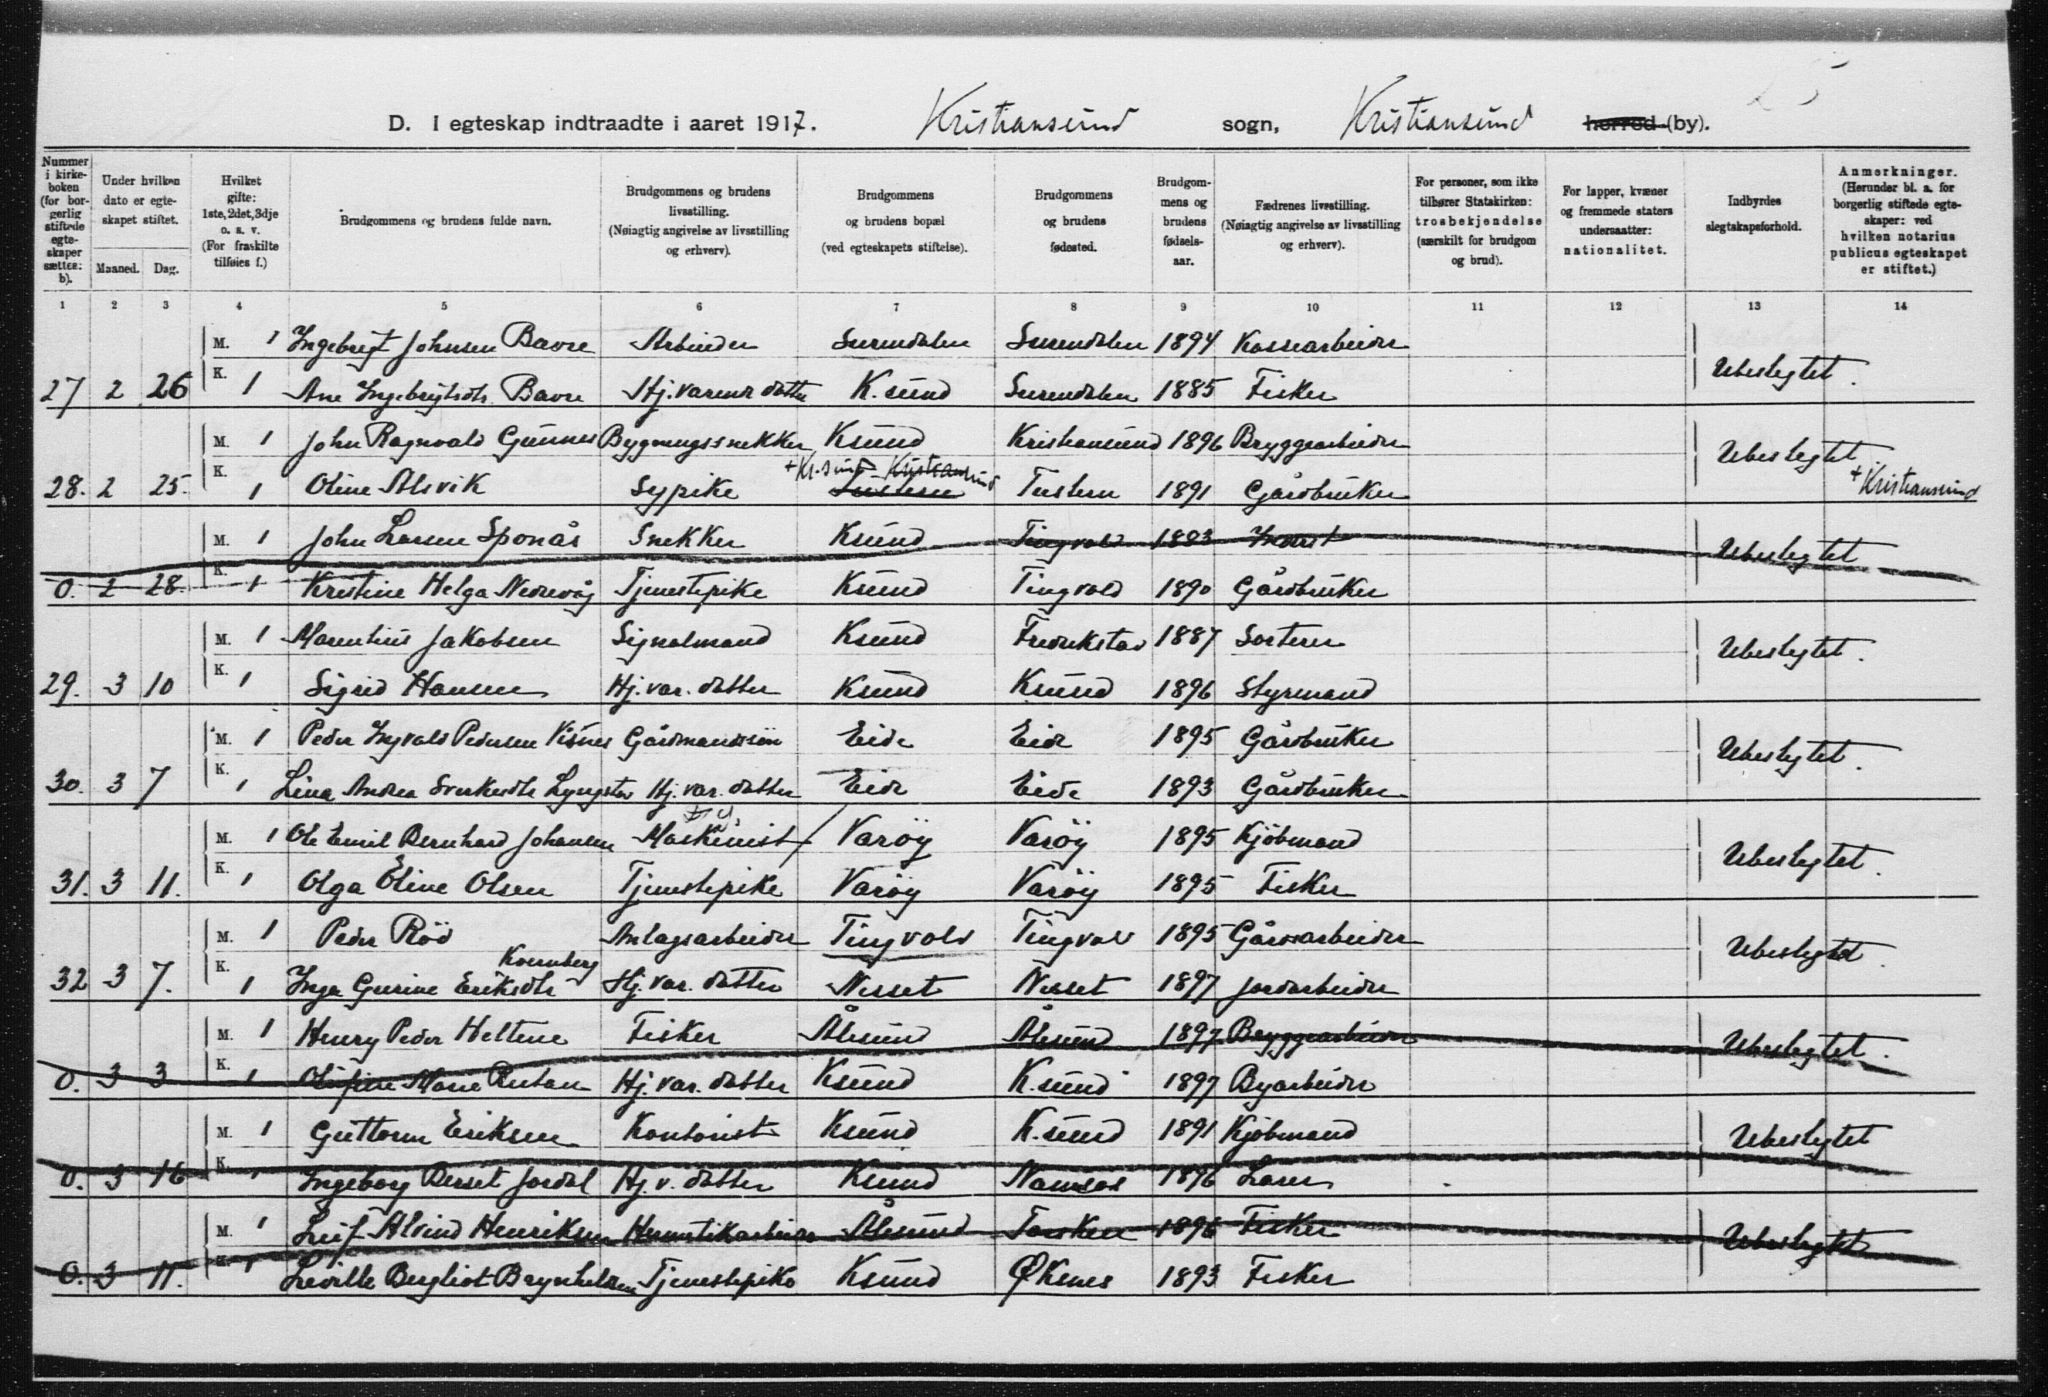 25
D. I egteskap indtraadte i aaret 1917. Kristiansund sogn, Kristiansund herred (by).
Nummer i kirkeboken (for borgerlig stiftede egteskaper sættes: b).
Under hvilken dato er egteskapet stiftet.
Maaned. Dag.
Hvilket gifte: 1ste, 2det, 3dje o. s. v. (For fraskilte tilføies f.)
Brudgommens og brudens fulde navn.
Brudgommens og brudens livsstilling. (Nøiagtig angivelse av livsstilling og erhverv).
Brudgommens og brudens bopæl (ved egteskapets stiftelse).
Brudgommens og brudens fødested.
Brudgommens og brudens fødselsaar.
Fædrenes livsstilling. (Nøiagtig angivelse av livsstilling og erhverv).
For personer, som ikke tilhører Statskirken: trosbekjendelse (særskilt for brudgom og brud).
For lapper, kvæner og fremmede staters undersaatter: nationalitet.
Indbyrdes slegtskapsforhold.
Anmerkninger. (Herunder bl. a. for borgerlig stiftede egteskaper: ved hvilken notarius publicus egteskapet er stiftet.)
1 2 3 4 5 6 7 8 9 10 11 12 13 14
M. 1 Ingebrigt Johnsen Bavre Arbeider Surendalen Surendalen 1894 Kassearbeider
27 2 26 K. 1 Ane Ingebrigtsdtr Bavre Hj. varende datter K.sund Surendalen 1885 Fisker Ubeslegtet.
M. 1 John Ragnvald Gunnes Bygningssnekker Ksund Kristiansund 1896 Bryggearbeider
+ Kr.sund Kristiansund
28. 2 25. K. 1 Oline Alsvik Sypike Tustern Tustern 1891 Gårdbruker Ubeslegtet + Kristiansund
M. 1 John Larsen Sponås Snekker Ksund Tingvold 1883
0. 2 28. K. 1 Kristine Helga Nedrevåg Tjenestepike Ksund Tingvold 1890 Gårdbruker Ubeslegtet
M. 1 Marentius Jakobsen Signalmand Ksund Fredrikstad 1887 Sorterer
29. 3 10 K. 1 Sigrid Hansen Hj. var. datter Ksund Ksund 1896 Styrmand Ubeslegtet.
M. 1 Peder Ingvald Pedersen Visnes Gårdmandssön Eide Eide 1895 Gårdbruker
30. 3 7 K. 1 Lina Andrea Sverkesdtr Lyngstad Hj. var. datter Eide Eide 1893 Gårdbruker Ubeslegtet.
M. 1 Ole Emil Bernhard Johansen Maskinist Varöy Varöy 1895 Kjöbmand
31. 3 11. K. 1 Olga Eline Olsen Tjenestepike Varöy Varöy 1895 Fisker Ubeslegtet.
M. 1 Peder Röd Anlagsarbeider Tingvold Tingvold 1895 Gårdsarbeider
Kvernberg
32 3 7. K. 1 Inga Gurine Eriksdtr Hj. var. datter Nesset Nesset 1897 Jordarbeider Ubeslegtet.
M. 1 Henry Peder Heltene Fisker Ålesund Ålesund 1897 Bryggearbeider
0. 3 3 K. 1 Marie Hj. var. datter Ksund K.sund 1897 Byarbeider Ubeslegtet.
M. 1 Guttorm Eriksen Kontorist Ksund K.sund 1891 Kjöbmand
0. 3 16 K. 1 Ingeborg Berset Jordal Hj. v. datter Ksund Namsos 1896 Lærer Ubeslegtet
M. 1 Leif Alvind Henriksen Hermetikarbeider Ålesund Torsken 1896 Fisker
0. 3 11. K. 1 Bergliot Brynhildsen Tjenestepike Ksund Øksnes 1893 Fisker Ubeslegtet